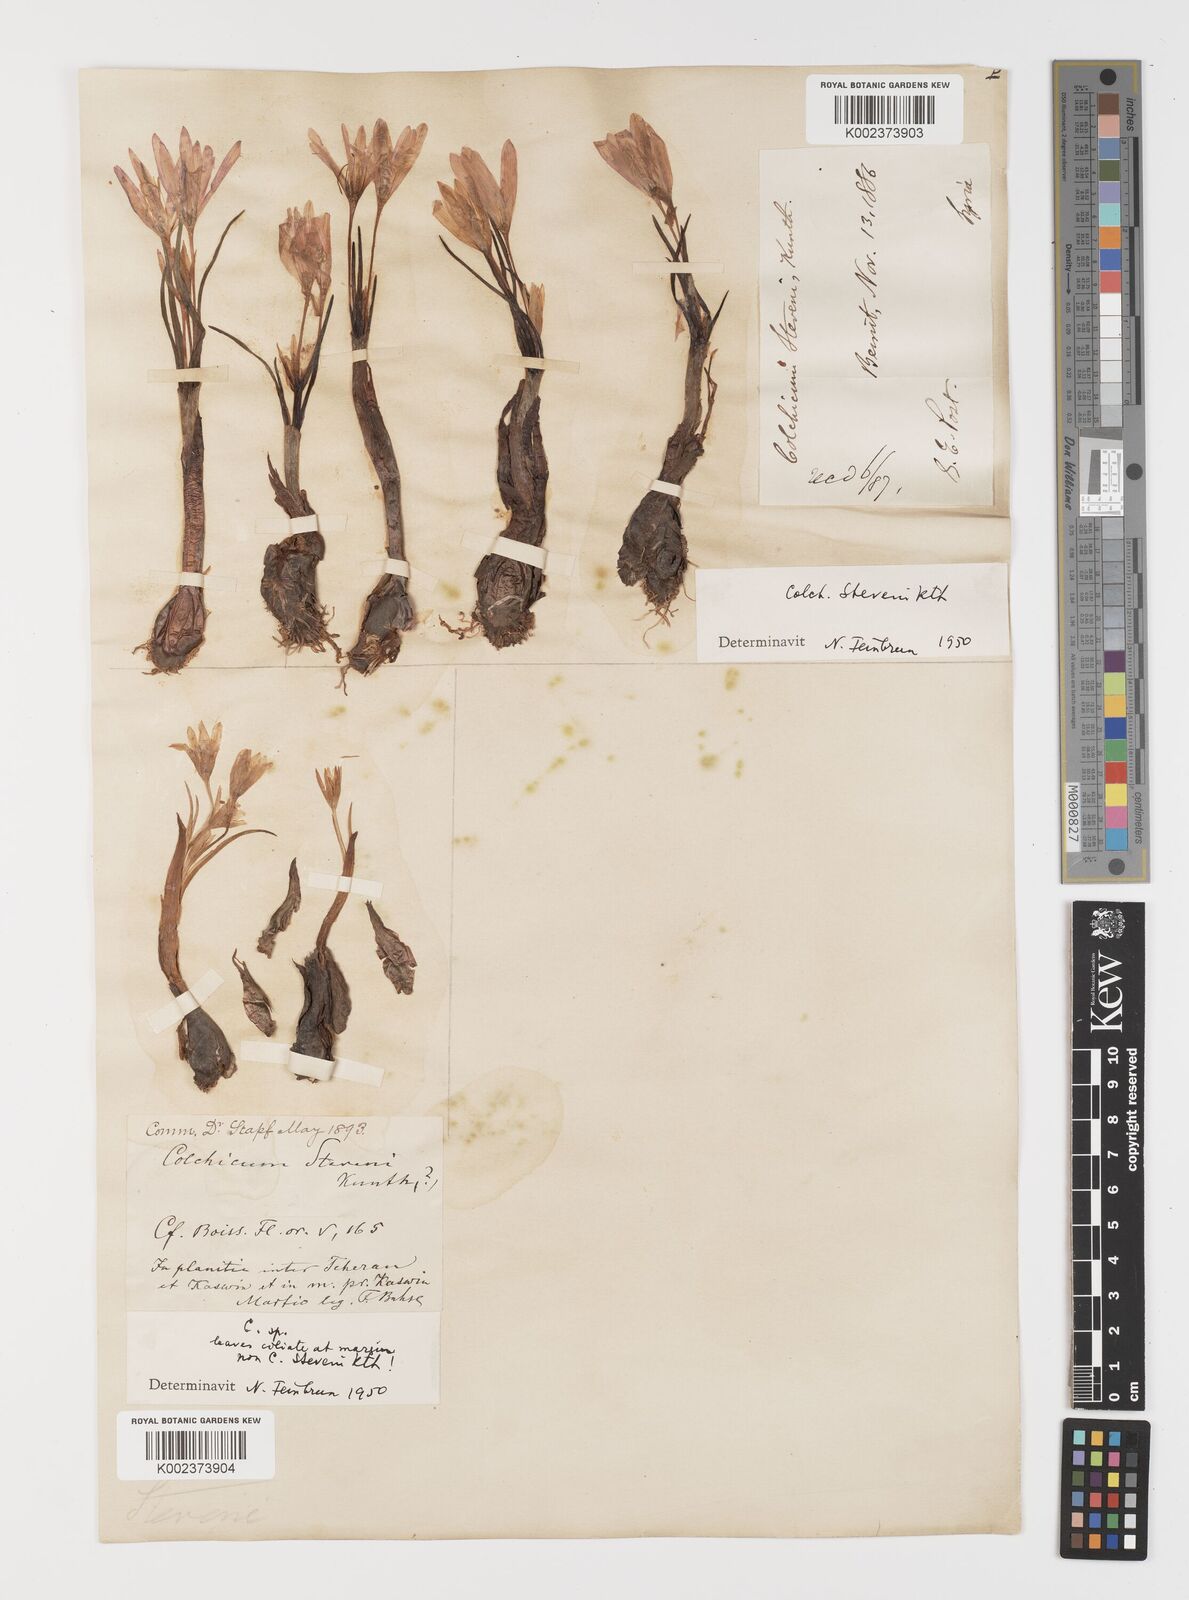 ROYAL BOTANIC GARDENS KEW
K002373903
Colchicum Steveni, Kunth.
Beirut, Nov. 13, 1886
Syria
G. E. Post.
recd 6/87.
Colch. Steveni Kth
Determinavit N. Feinbrun 1950
Comm. Dr Stapf May 1893.
Colchicum Steveni
Kunth(?)
Cf. Boiss. Fl. or. V, 165
In planitie inter Teheran
et Kaswin et in m. pr. Kaswin
Martio leg. F. Buhse
C. sp.
leaves ciliate at margin
non C. Steveni Kth!
Determinavit N. Feinbrun 1950
ROYAL BOTANIC GARDENS KEW
K002373904
Steveni
inches
centimeters
Density
Don Williams
M000827
Kew
Royal Botanic Gardens
copyright reserved
0 1 2 3 4 5 6 7 8 9 10
cm